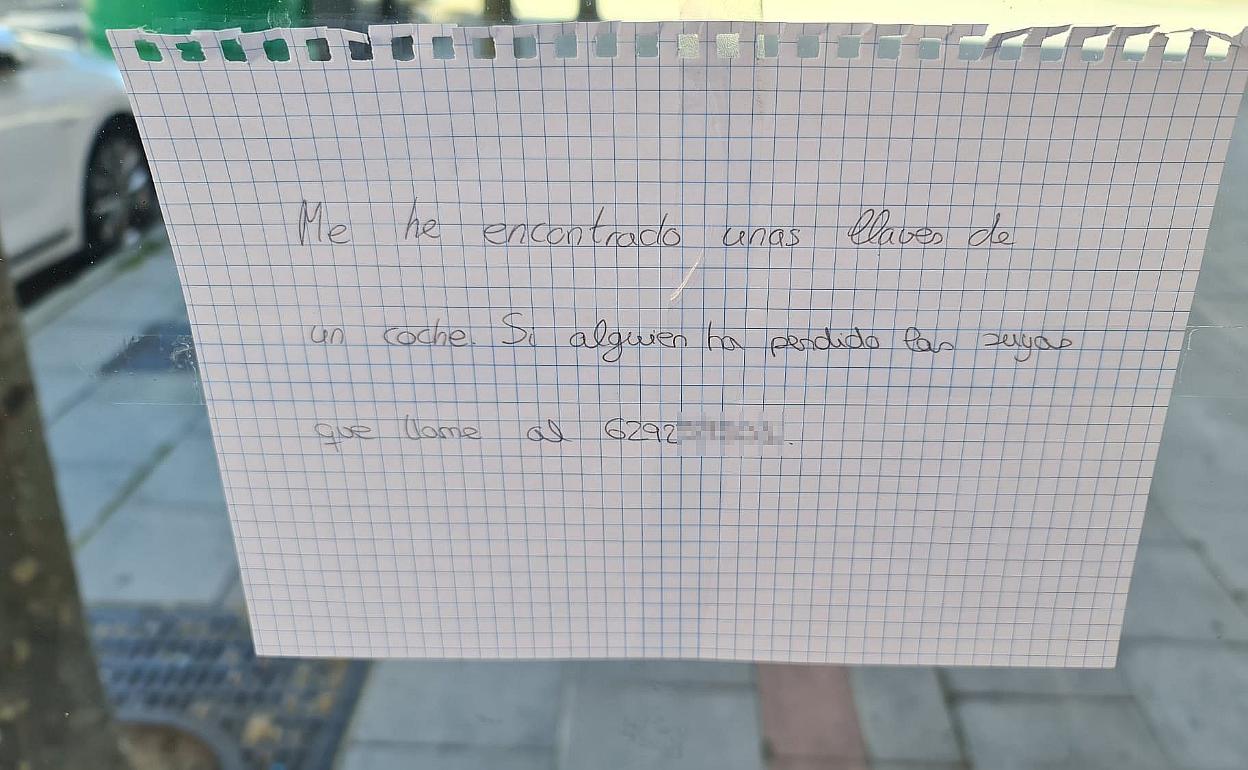 Me he encontrado unas llaves de
un coche. Si alguien ha perdido las suyas
que llame al 6292